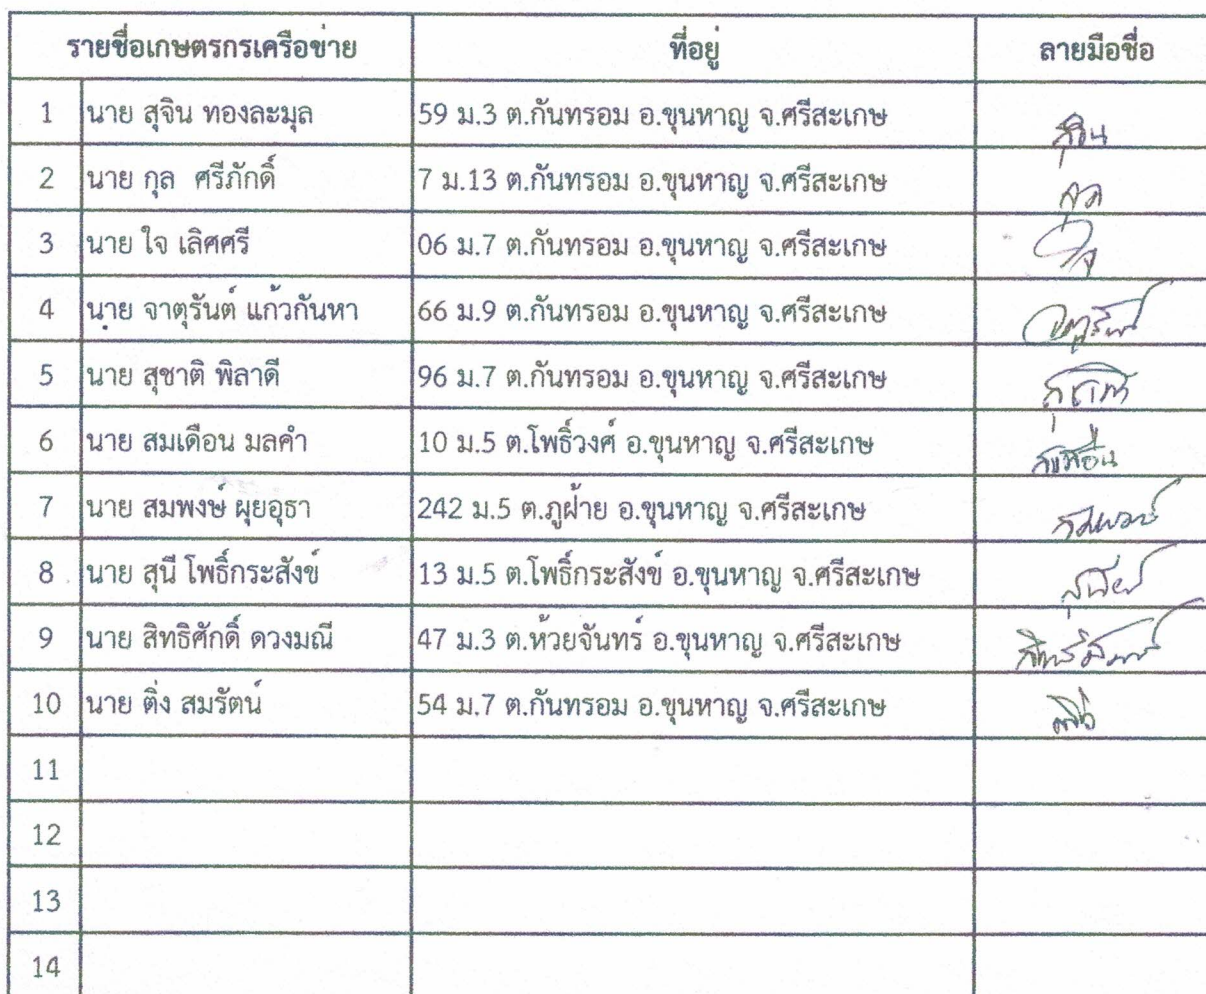 รายชื่อเกษตรกรเครือข่าย ที่อยู่ ลายมือชื่อ
1 นาย สุจิน ทองละมุล 59 ม.3 ต.กันทรอม อ.ขุนหาญ จ.ศรีสะเกษ สุจิน
2 นาย กุล ศรีภักดิ์ 7 ม.13 ต.กันทรอม อ.ขุนหาญ จ.ศรีสะเกษ กุล
3 นาย ใจ เลิศศรี 06 ม.7 ต.กันทรอม อ.ขุนหาญ จ.ศรีสะเกษ ใจ
4 นาย จาตุรันต์ แก้วกันหา 66 ม.9 ต.กันทรอม อ.ขุนหาญ จ.ศรีสะเกษ
5 นาย สุชาติ พิลาดี 96 ม.7 ต.กันทรอม อ.ขุนหาญ จ.ศรีสะเกษ สุชาติ
6 นาย สมเดือน มลคำ 10 ม.5 ต.โพธิ์วงศ์ อ.ขุนหาญ จ.ศรีสะเกษ
7 นาย สมพงษ์ ผุยอุธา 242 ม.5 ต.ภูฝ้าย อ.ขุนหาญ จ.ศรีสะเกษ สมพงษ์
8 นาย สุนี โพธิ์กระสังข์ 13 ม.5 ต.โพธิ์กระสังข์ อ.ขุนหาญ จ.ศรีสะเกษ
9 นาย สิทธิศักดิ์ ดวงมณี 47 ม.3 ต.ห้วยจันทร์ อ.ขุนหาญ จ.ศรีสะเกษ
10 นาย ติ่ง สมรัตน์ 54 ม.7 ต.กันทรอม อ.ขุนหาญ จ.ศรีสะเกษ ติ่ง
11
12
13
14